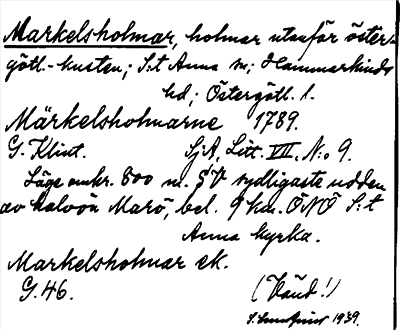 Markelsholmar, holmar utanför öster-
götl.-kusten; S:t Anna sn; Hammarkinds
hd; Östergötl. l.
Märkelsholmarne 1789.
G. Klint. SjA, Litt. VII, N:o 9.
Läge omkr. 800 m. SV sydligaste udden
av halvön Marö, bel. 9 km. ÖNÖ S:t
Anna kyrka.
Markelsholmar ek.
G.46. (Vänd!)
1939.